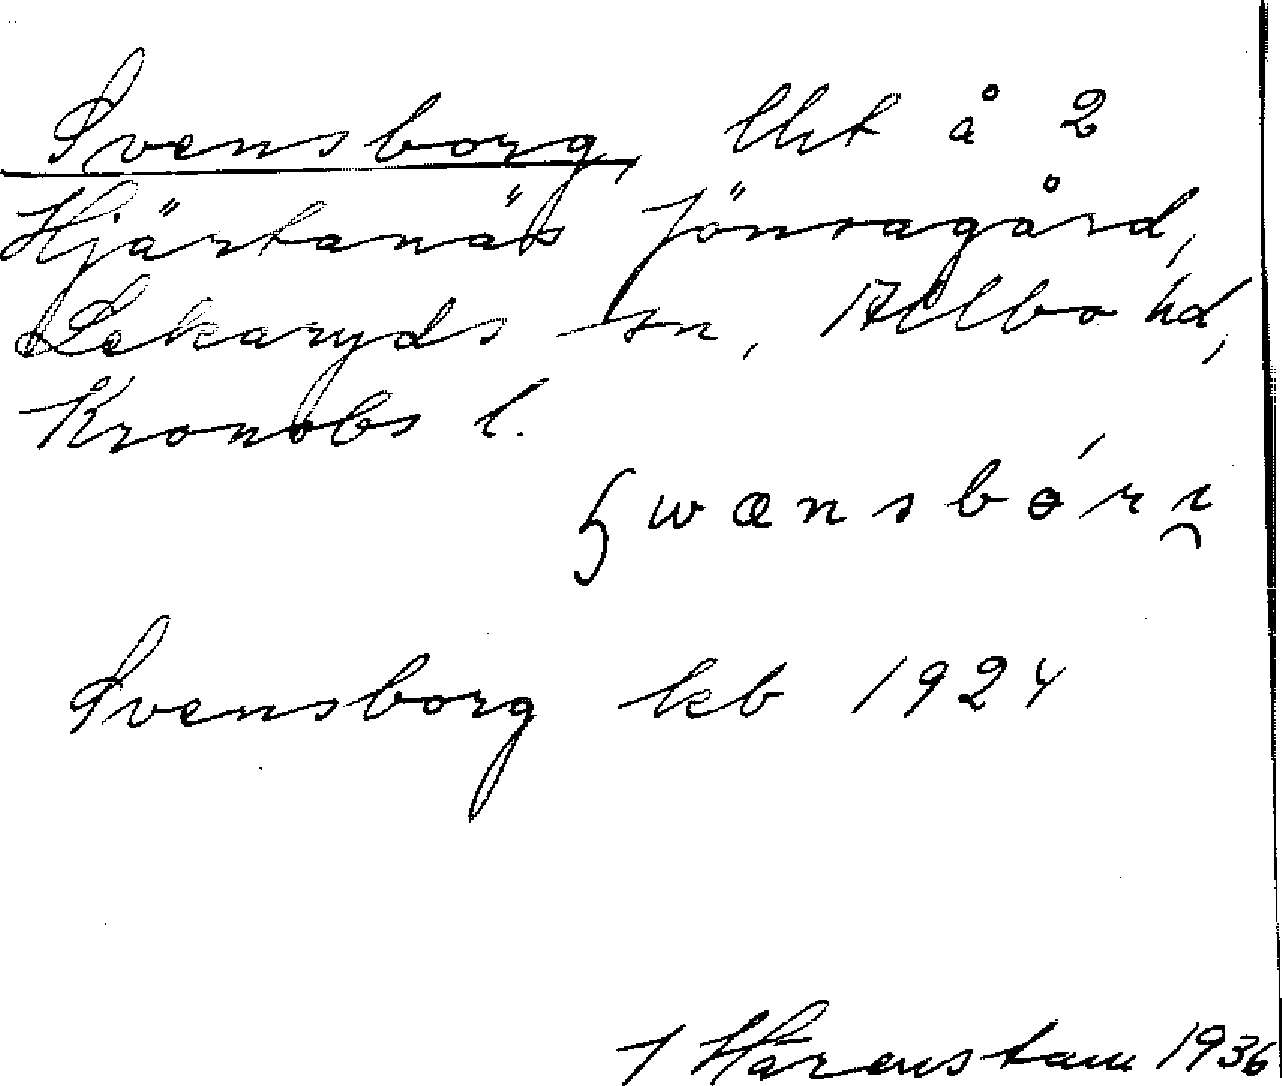 Svensborg, lht å 2
Hjärtanäs Jönsagård,
Lekaryds sn, Allbo hd,
Kronobs l.
Svensborg kb 1924
J Hårenstam 1936